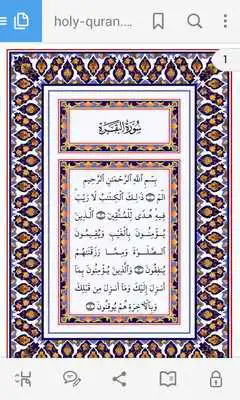 holy-quran....
1
سُورَةُ البَقَرَةِ
بِسْمِ اللَّهِ الرَّحْمَٰنِ الرَّحِيمِ
الٓمٓ ۝١ ذَٰلِكَ الْكِتَٰبُ لَا رَيْبَ
فِيهِ هُدًى لِّلْمُتَّقِينَ ۝٢ الَّذِينَ
يُؤْمِنُونَ بِالْغَيْبِ وَيُقِيمُونَ
الصَّلَوٰةَ وَمِمَّا رَزَقْنَٰهُمْ
يُنفِقُونَ ۝٣ وَالَّذِينَ يُؤْمِنُونَ بِمَا
أُنزِلَ إِلَيْكَ وَمَا أُنزِلَ مِن قَبْلِكَ
وَبِالْآخِرَةِ هُمْ يُوقِنُونَ ۝٤